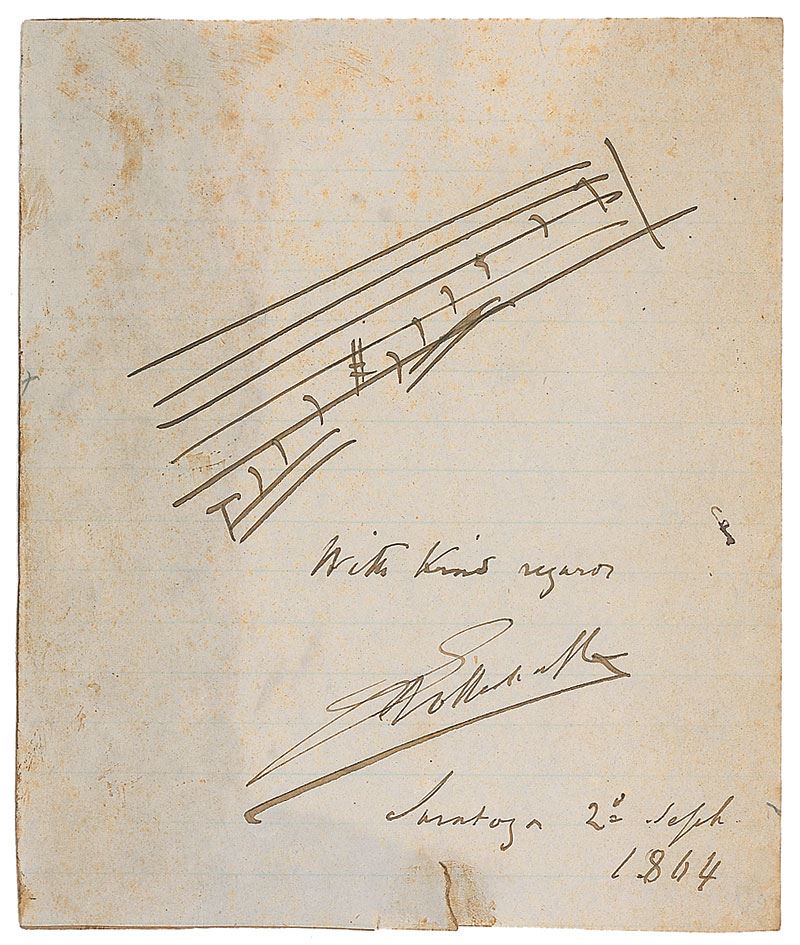 With Kind regards
Gottschalk
Saratoga 2d Sept.
1864